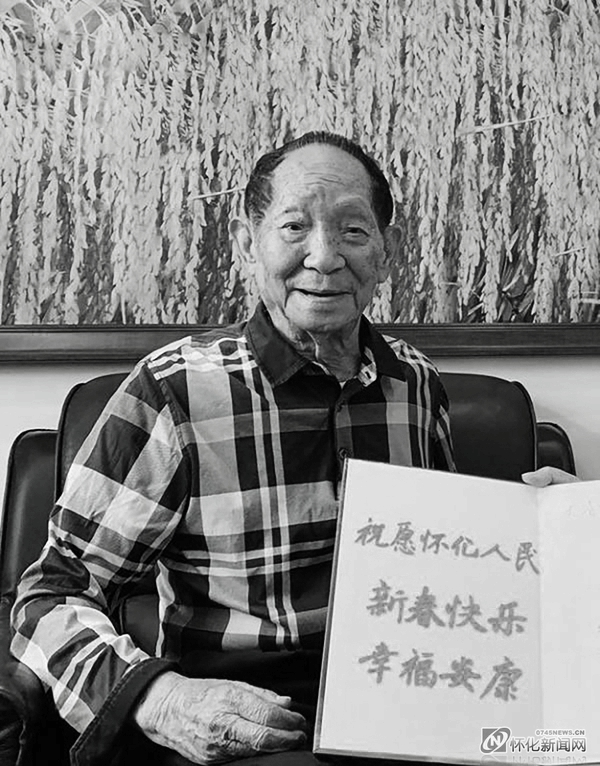 祝愿怀化人民
新春快乐
幸福安康
0745NEWS.CN
怀化新闻网